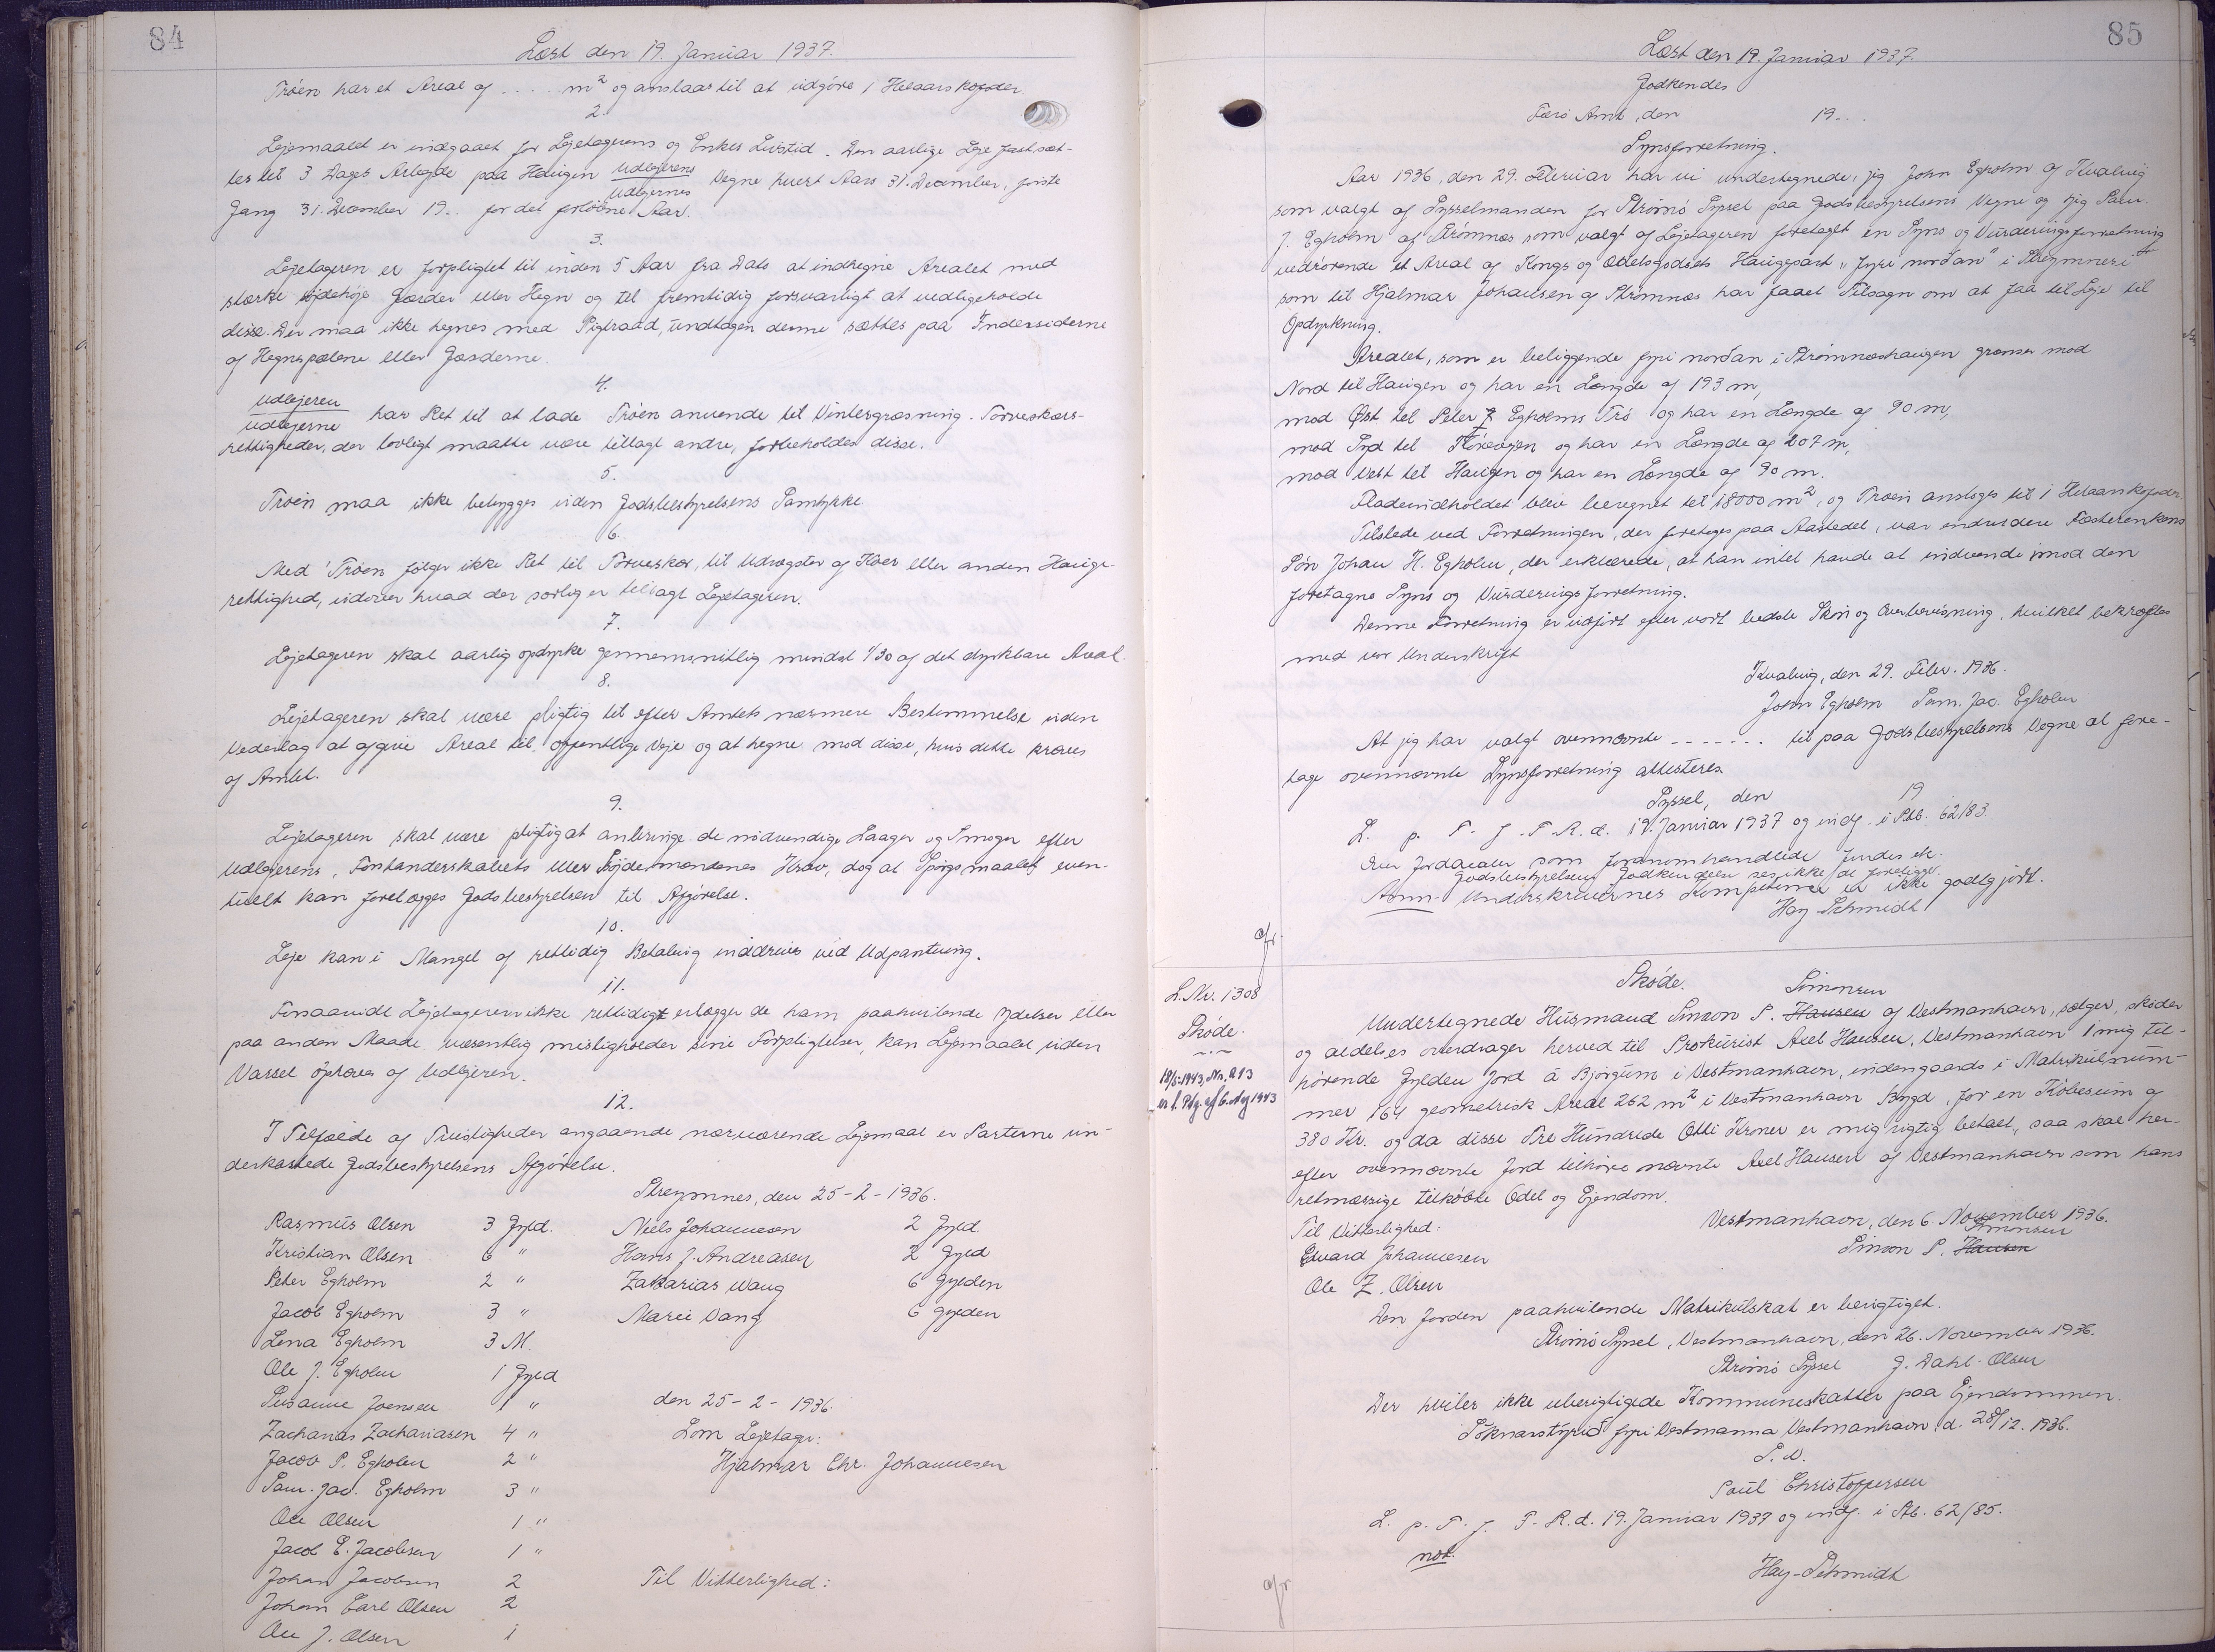 84
Læst den 19. Januar 1937.
Tröen har et Areal af .... m² og anslaas til at udgöre 1 Helaarskofoder.
2.
Lejemaalet er indgaaet for Lejetagerens og Enkes Livstid. Den aarlige Leje fastsæt-
tes til 3 Dages Arbejde paa Haugen Udlejerens
Udlejernes Vegne hvert Aars 31. December, første
Gang 31. December 19.. for det forløbne Aar.
3.
Lejetageren er forpligtet til inden 5 Aar fra Dato at indhegne Arealet med
stærke höjdehöje Gærder eller Hegn og til fremtidig forsvarligt at vedligeholde
disse. Der maa ikke hegnes med Pigtraad, undtagen denne sættes paa Indersiderne
af Hegnspælene eller Gærderne.
4.
Udlejeren
Udlejerne har Ret til at lade Tröen anvende til Vintergræsning. Tørveskærs-
rettigheder, der lovligt maatte være tillagt andre, forbeholdes disse.
5.
Tröen maa ikke bebygges uden Godsbestyrelsens Samtykke
6.
Med Tröen følger ikke Ret til Törveskær, til Udrægster af Köer eller anden Hauge-
rettighed, udover hvad der særlig er tillagt Lejetageren.
7.
Lejetageren skal aarlig opdyrke gennemsnitlig mindst 1/30 af det dyrkbare Areal.
8.
Lejetageren skal være pligtig til efter Amtets nærmere Bestemmelse uden
Vederlag at afgive Areal til offentlige Veje og at hegne mod disse, hvis dette kræves
af Amtet.
9.
Lejetageren skal være pligtig at anbringe de nödvendige Laager og Smoger efter
Udlejerens, Forstanderskabets eller Söjdemændenes Krav, dog at Spörgsmaalet even-
tuelt kan forelægges Godsbestyrelsen til Afgörelse.
10.
Leje kan i Mangel af rettidig Betaling inddrives ved Udpantning.
11.
Forsaavidt Lejetageren ikke rettidigt erlægger de ham paahvilende Ydelser eller
paa anden Maade væsentlig misligholder sine Forpligtelser, kan Lejemaalet uden
Varsel ophæves af Udlejeren.
12.
I Tilfælde af Tvistigheder angaaende nærværende Lejemaal er Parterne un-
derkastede Godsbestyrelsens Afgörelse.
Streymnes, den 25-2-1936.
Rasmus Olsen 3 Gyld. Niels Johannesen 2 Gyld.
Kristian Olsen 6 " Hans J. Andreasen 2 Gyld
Peter Egholm 2 " Zakarias Wang 6 Gylden
Jacob Egholm 3 " Marie Vang 6 Gylden
Lena Egholm 3 M.
Ole J. Egholm 1 Gyld
Susanne Joensen 1 " den 25-2-1936.
Zacharias Zachariasen 4 " Som Lejetager:
Jacob P. Egholm 2 " Hjalmar Chr. Johannesen
Sam. Jac. Egholm 3 "
Ole Olsen 1 "
Jacob E. Jacobsen 1 "
Johan Jacobsen 2 Til Vitterlighed:
Johan Carl Olsen 2
Ole J. Olsen 1
85
Læst den 19. Januar 1937.
Godkendes
Færö Amt, den 19...
Synsforretning.
Aar 1936, den 29. Februar har vi undertegnede, jeg John Egholm af Kvalvig
som valgt af Sysselmanden for Strömö Syssel paa Godsbestyrelsens Vegne og jeg Sam.
J. Egholm af Strömnes som valgt af Lejetageren foretaget en Syns og Vurderingsforretning
vedrörende et Areal af Kongs og Odelsgodsets Haugepart "Fyri norðan" i Streymnesi
som til Hjalmar Johansen af Strömnes har faaet Tilsagn om at faa til Leje til
Opdyrkning.
Arealet, som er beliggende fyri norðan i Strömneshaugen grænser mod
Nord til Haugen og har en Længde af 193 m,
mod Øst til Peter J Egholms Trö og har en Længde af 90 m,
mod Syd til Körevejen og har en Længde af 207 m,
mod Vest til Haugen og har en Længde af 90 m.
Fladeindholdet blev beregnet til 18000 m², og Tröen ansloges til 1 Helaarskofoder.
Tilstede ved Forretningen, der foretoges paa Aastedet, var endvidere Fæsterenkens
Sön Johan H. Egholm, der erklærede, at han intet havde at indvende imod den
foretagne Syns og Vurderingsforretning.
Denne Forretning er udfört efter vort bedste Skön og Overbevisning, hvilket bekræftes
med vor Underskrift
Kvalvig, den 29. Febr. 1936.
John Egholm Sam. Jac. Egholm
At jeg har valgt ovennævnte ....... til paa Godsbestyrelsens Vegne at fore-
tage ovennævnte Synsforretning attesteres
Syssel, den 19
L. p. T. f. F. R. d. 19. Januar 1937 og indf. i Ptb. 62/83.
Over Jordarealer som foranomhandlede findes ek.
Godsbestyrelsens Godkendelse ses ikke at foreligge.
Anm. Underskrivernes Kompetence er ikke godtgjört.
Hay-Schmidt
gfr.
L. Nr. 1308
Sköde.
18/5-1943, Nr. 213
er l. Pfg. af 6. Maj 1943
Sköde.
Simonsen
Undertegnede Husmand Simon P. Hansen af Vestmanhavn, sælger, sköder
og aldeles overdrager herved til Prokurist Axel Hansen, Vestmanhavn 1 mig til-
hørende Gylden Jord á Bjørgum i Vestmanhavn, indengaards i Matrikulnum-
mer 164 geometrisk Areal 262 m² i Vestmanhavn Bygd, for en Köbesum af
380 Kr. og da disse Tre Hundrede Otti Kroner er mig rigtig betalt, saa skal her-
efter ovennævnte Jord tilhöre nævnte Axel Hansen af Vestmanhavn som hans
retmæssige tilköbte Odel og Ejendom.
Til Vitterlighed: Vestmanhavn, den 6. November 1936.
Simonsen
Edvard Johannesen Simon P. Hansen
Ole Z. Olsen
Den Jorden paahvilende Matrikulskat er berigtiget.
Strömö Syssel, Vestmanhavn, den 26. November 1936.
Strömö Syssel J. Dahl-Olsen
Der hviler ikke uberigtigede Kommuneskatter paa Ejendommen.
Söknarstýrið fyri Vestmanna Vestmanhavn, d. 28/12. 1936.
S. U.
Poul Christoffersen
L. p. T. f. F. R. d. 19. Januar 1937 og indf. i Ptb. 62/85.
not.
Hay-Schmidt
gfr